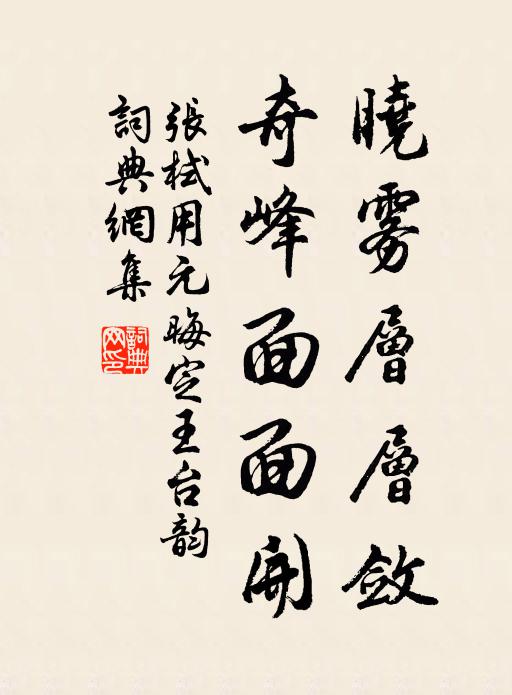 曉雾層層敛
奇峰面面開
張栻用元晦定王台韵
詞典網集
詞典网印